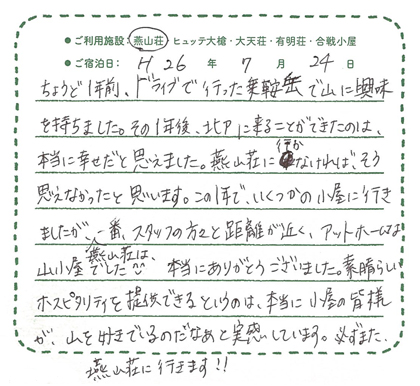 ●ご利用施設：燕山荘・ヒュッテ大槍・大天荘・有明荘・合戦小屋
●ご宿泊日：H 26 年 7 月 24 日
ちょうど1年前、ドライブで行った乗鞍岳で山に興味
を持ちました。その1年後、北アに来ることができたのは、
本当に幸せだと思えました。燕山荘に行かなければ、そう
思えなかったと思います。この1年で、いくつかの小屋に行き
ましたが、一番、スタッフの方々と距離が近く、アットホームな
山小屋燕山荘は、でした 本当にありがとうございました。素晴らしい
ホスピタリティを提供できるというのは、本当に小屋の皆様
が、山を好きでいるのだなあと実感しています。必ずまた、
燕山荘に行きます!!